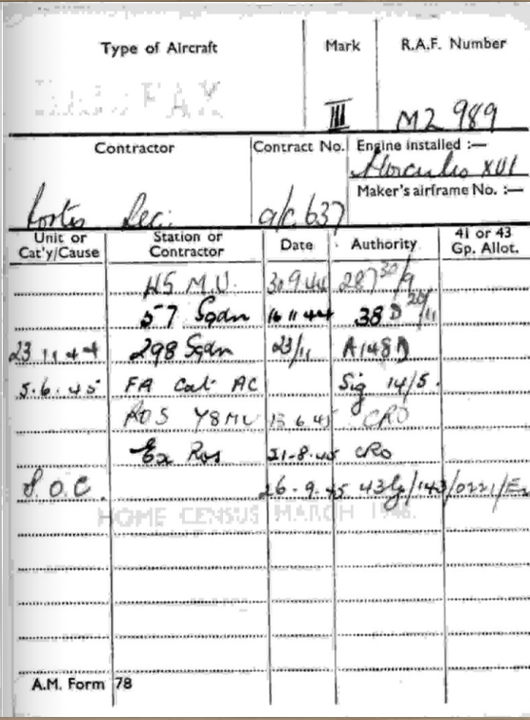 Type of Aircraft Mark R.A.F. Number
HALIFAX III MZ 989
Contractor Contract No. Engine installed :—
Hercules XVI
Maker's airframe No. :—
a/c. 637
Unit or Cat'y/Cause Station or Contractor Date Authority 41 or 43 Gp. Allot.
45 M.U. 30 9 44 287 30/9
57 Sqdn 16 11 44 38D /11
23 11 44 298 Sqdn 23/11 A148D
5.6.45 FA Cat AC Sig 14/5.
ROS 48MU 13 6 45 CRO
Ex Ros 21-8-45 CRO
S.O.C. 26-9-45 43G/143/0221/
HOME CENSUS MARCH 1946.
A.M. Form 78